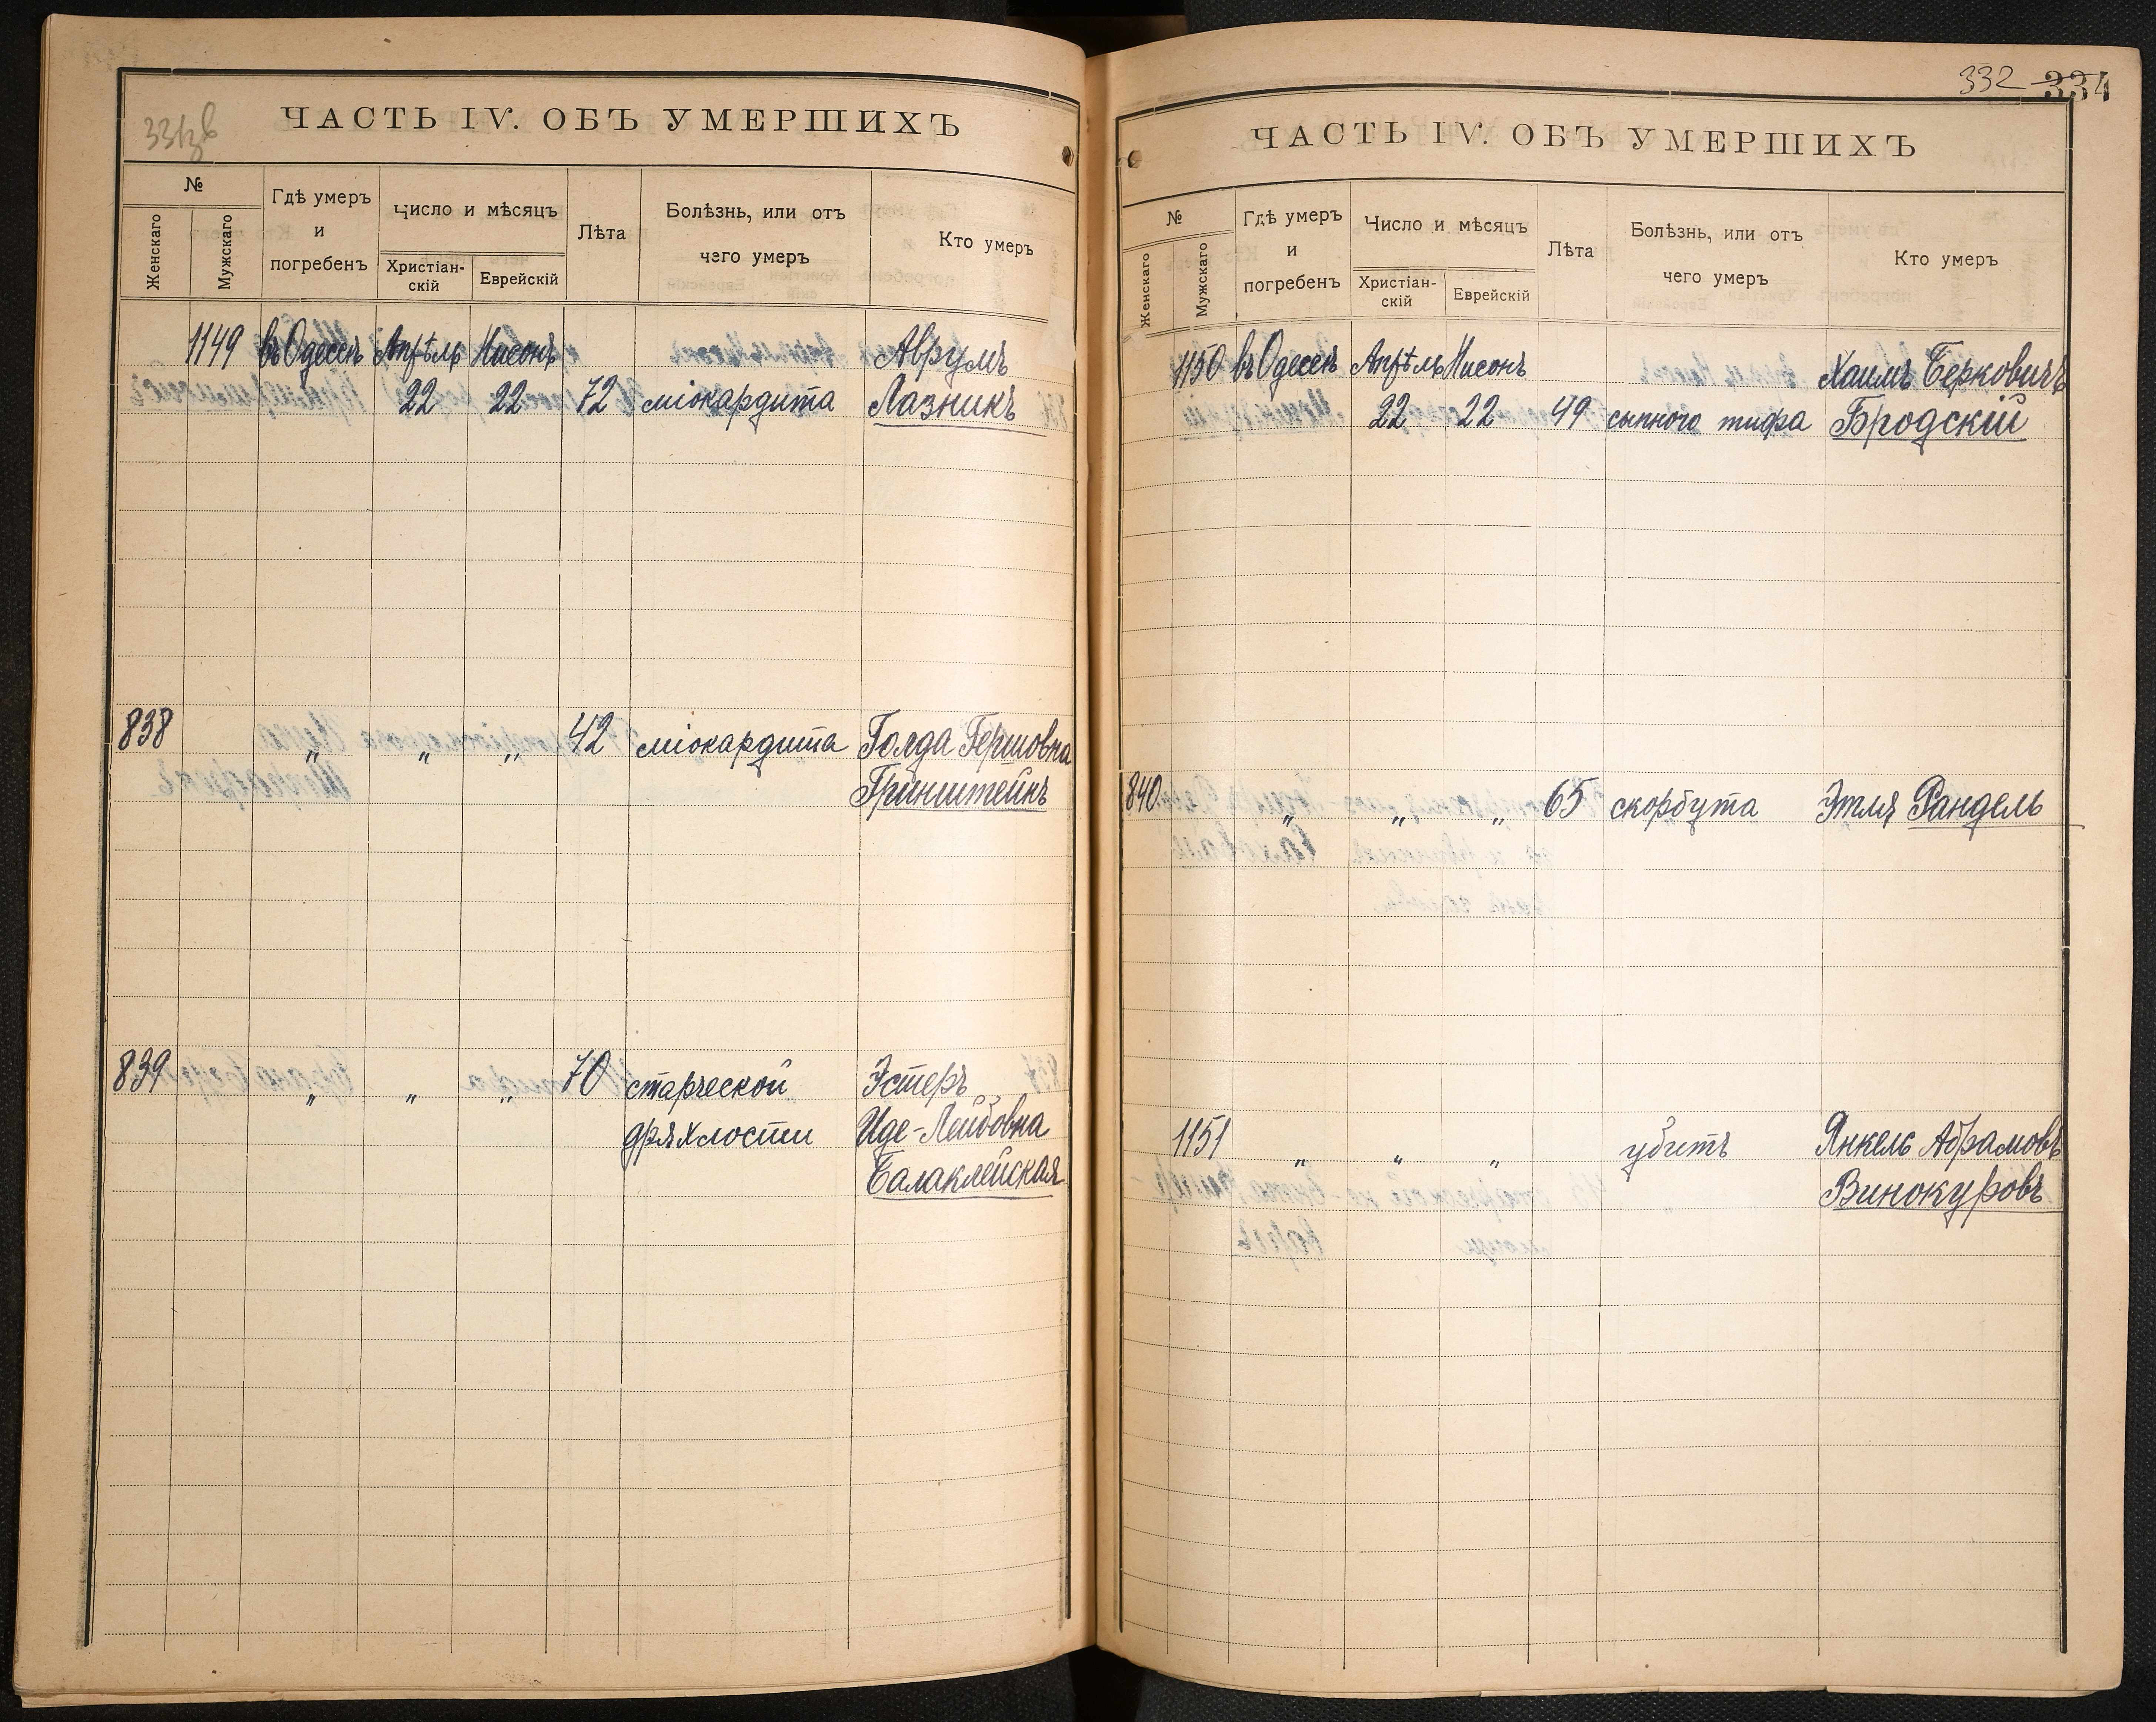 331об
ЧАСТЬ IV. ОБЪ УМЕРШИХЪ
№
Женскаго
Мужскаго
Гдѣ умеръ
и
погребенъ
Число и мѣсяцъ
Христіан-
скій
Еврейскій
Лѣта
Болѣзнь, или отъ
чего умеръ
Кто умеръ
1149 въ Одессѣ Апрѣль Нисонъ Аврумъ
22 22 72 міокардита Лазникъ
838 „ „ „ 42 міокардита Голда Гершовна
Гринштейнъ
839 „ „ „ 70 старческой Эстеръ
дряхлости Иде-Лейбовна
Балаклейская
332 334
ЧАСТЬ IV. ОБЪ УМЕРШИХЪ
№
Женскаго
Мужскаго
Гдѣ умеръ
и
погребенъ
Число и мѣсяцъ
Христіан-
скій
Еврейскій
Лѣта
Болѣзнь, или отъ
чего умеръ
Кто умеръ
1150 въ Одессѣ Апрѣль Нисонъ Хаимъ Берковичъ
22 22 49 сыпного тифа Бродскій
840 „ „ „ 65 скорбута Этля Рандель
1151 „ „ „ убитъ Янкель Абрамовъ
Винокуровъ